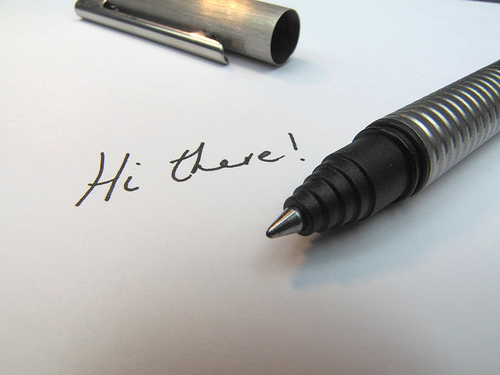 Hi there!